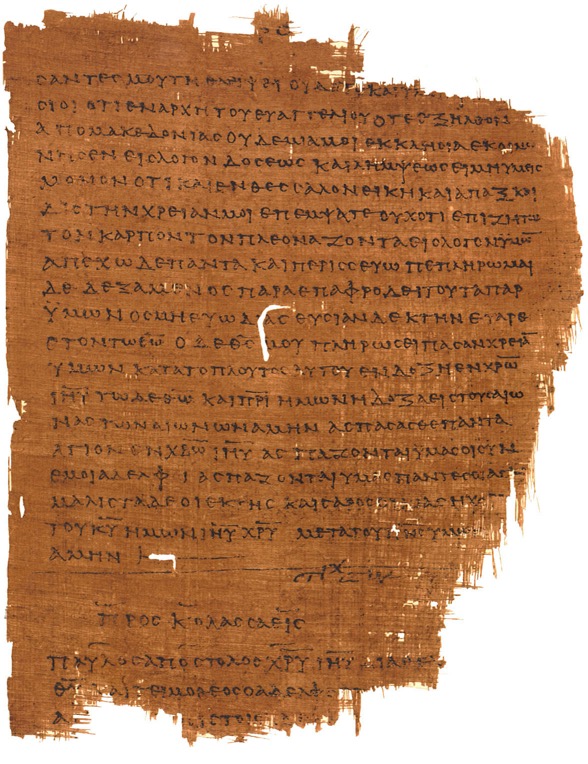 CΑΝΤΕCΜΟΥΤΗ ΘΛΙΨΕΙ ΟΙΔΑΤΕ ΚΑΙ
CΙΟΙ ΟΤΙΕΝΑΡΧΗΤΟΥΕΥΑΓΓΕΛΙΟΥ ΟΤΕΕΞΗΛΘΟΝ
ΑΠΟΜΑΚΕΔΟΝΙΑC ΟΥΔΕΜΙΑΜΟΙ ΕΚΚΛΗCΙΑΕΚΟΙΝΩ
ΝΗCΕΝ ΕΙCΛΟΓΟΝ ΔΟCΕΩC ΚΑΙΛΗΜΨΕΩC ΕΙΜΗΥΜΕΙC
ΜΟΝΟΝ ΟΤΙ ΚΑΙΕΝΘΕCCΑΛΟΝΕΙΚΗ ΚΑΙΑΠΑΞ ΚΑΙ
ΔΙCΤΗΝΧΡΕΙΑΝΜΟΙ ΕΠΕΜΨΑΤΕ ΟΥΧΟΤΙ ΕΠΙΖΗΤΩ
ΤΟΝ ΚΑΡΠΟΝ ΤΟΝΠΛΕΟΝΑΖΟΝΤΑ ΕΙCΛΟΓΟΝΥΜΩ̅
ΑΠΕΧΩ ΔΕΠΑΝΤΑ ΚΑΙΠΕΡΙCCΕΥΩ ΠΕΠΛΗΡΩΜΑΙ
ΔΕ ΔΕΞΑΜΕΝΟC ΠΑΡΑΕΠΑΦΡΟΔΕΙΤΟΥΤΑΠΑΡ
ΫΜΩΝ ΟCΜΗΕΥΩΔΙΑC ΘΥCΙΑΝΔΕΚΤΗΝ ΕΥΑΡΕ
CΤΟΝΤΩΘ̅Ω̅ Ο ΔΕΘ̅C̅ ΜΟΥ ΠΛΗΡΩCΕΙΠΑCΑΝΧΡΕΙΑ̅
ΫΜΩΝ ΚΑΤΑΤΟΠΛΟΥΤΟC ΑΥΤΟΥ ΕΝΔΟΞΗΕΝΧ̅Ρ̅Ω̅
Ι̅Η̅Υ̅ ΤΩΔΕΘ̅Ω̅ ΚΑΙΠ̅Ρ̅Ι̅ ΗΜΩΝΗΔΟΞΑΕΙCΤΟΥCΑΙΩ
ΝΑCΤΩΝΑΙΩΝΩΝΑΜΗΝ ΑCΠΑCΑCΘΕΠΑΝΤΑ
ΑΓΙΟΝ ΕΝΧ̅Ρ̅Ω̅ Ι̅Η̅Υ̅ ΑCΠΑΖΟΝΤΑΙΥΜΑCΟΙCΥΝ
ΕΜΟΙΑΔΕΛΦΟΙ ΑCΠΑΖΟΝΤΑΙΥΜΑC ΠΑΝΤΕCΟΙΑΓΙ
ΜΑΛΙCΤΑΔΕΟΙΕΚΤΗC ΚΑΙCΑΡΟCΟΙΚΙΑCΗΧΑ
ΤΟΥΚ̅Υ̅ΗΜΩΝΙ̅Η̅Υ̅ Χ̅Ρ̅Υ̅ ΜΕΤΑΤΟΥΠ̅Ν̅C̅ΥΜΩ
ΑΜΗΝ
ΠΡΟC ΚΟΛΑCCΑΕΙC
ΠΑΥΛΟCΑΠΟCΤΟΛΟCΧ̅Ρ̅Υ̅ Ι̅Η̅Υ̅ ΔΙΑΘΕΛΗ
Θ̅Υ̅ ΚΑΙΤΕΙΜΟΘΕΟCΟΑΔΕΛΦ
Α